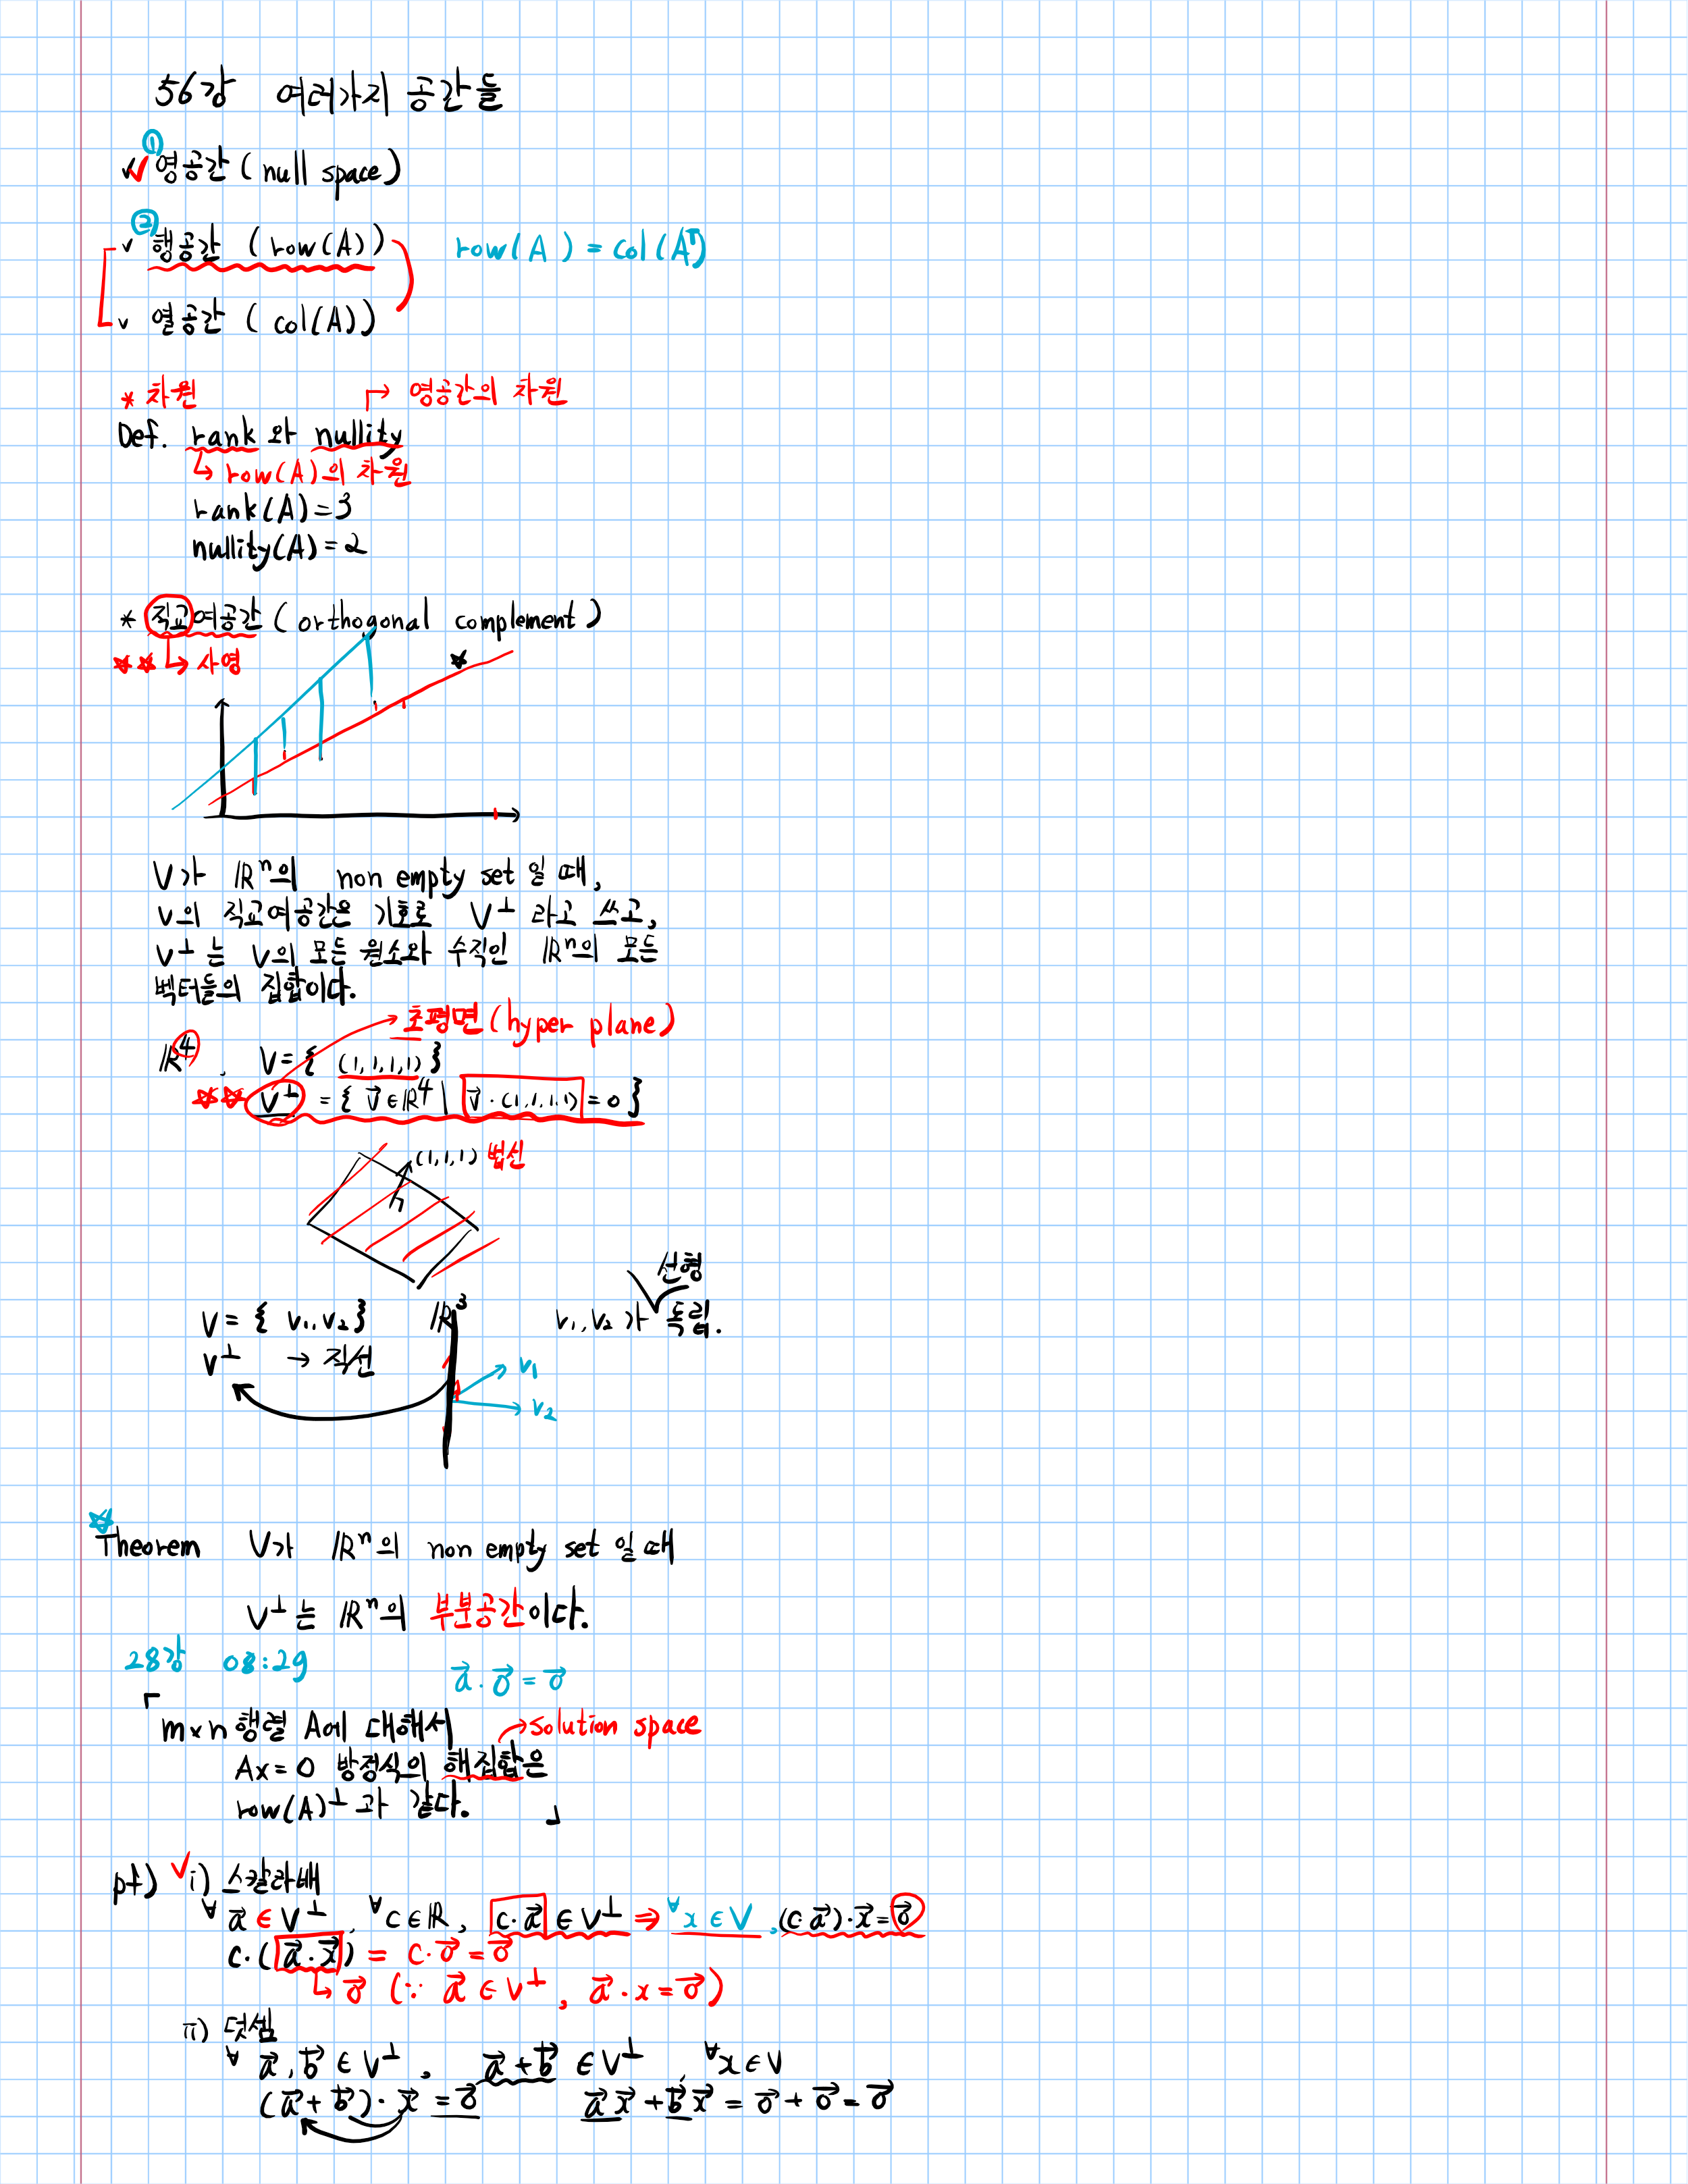 56강 여러가지 공간들
① 영공간 (null space)
② 행공간 (row(A)) row(A) = col(Aᵀ)
열공간 (col(A))
* 차원 → 영공간의 차원
Def. rank와 nullity
↳ row(A)의 차원
rank(A)=3
nullity(A)=2
* 직교여공간 (orthogonal complement)
☆☆ ↳ 사영
☆
V가 ℝⁿ의 non empty set 일 때,
V의 직교여공간은 기호로 V⊥ 라고 쓰고,
V⊥는 V의 모든 원소와 수직인 ℝⁿ의 모든
벡터들의 집합이다.
→ 초평면 (hyper plane)
ℝ⁴, V={ (1,1,1,1) }
☆☆ V⊥ = { v⃗ ∈ ℝ⁴ | v⃗ · (1,1,1,1) = 0 }
(1,1,1) 법선
n
선형
V = { v₁, v₂ } ℝ³ v₁, v₂ 가 독립.
V⊥ → 직선
v₁
v₂
☆
Theorem V가 ℝⁿ의 non empty set 일 때
V⊥는 ℝⁿ의 부분공간이다.
28강 08:29 a⃗ · o⃗ = o⃗
「
m×n 행렬 A에 대해서 → solution space
Ax=0 방정식의 해집합은
row(A)⊥과 같다. 」
pf) i) 스칼라배
∀ a⃗ ∈ V⊥, ∀c∈ℝ, c·a⃗ ∈ V⊥ ⇒ ∀x ∈ V, (c a⃗)·x⃗ = o⃗
c·(a⃗·x⃗) = c·o⃗ = o⃗
↳ o⃗ (∵ a⃗ ∈ V⊥, a⃗·x = o⃗)
ii) 덧셈
∀ a⃗, b⃗ ∈ V⊥, a⃗+b⃗ ∈ V⊥, ∀x∈V
(a⃗+b⃗)·x⃗ = o⃗ a⃗x⃗+b⃗x⃗ = o⃗+o⃗ = o⃗